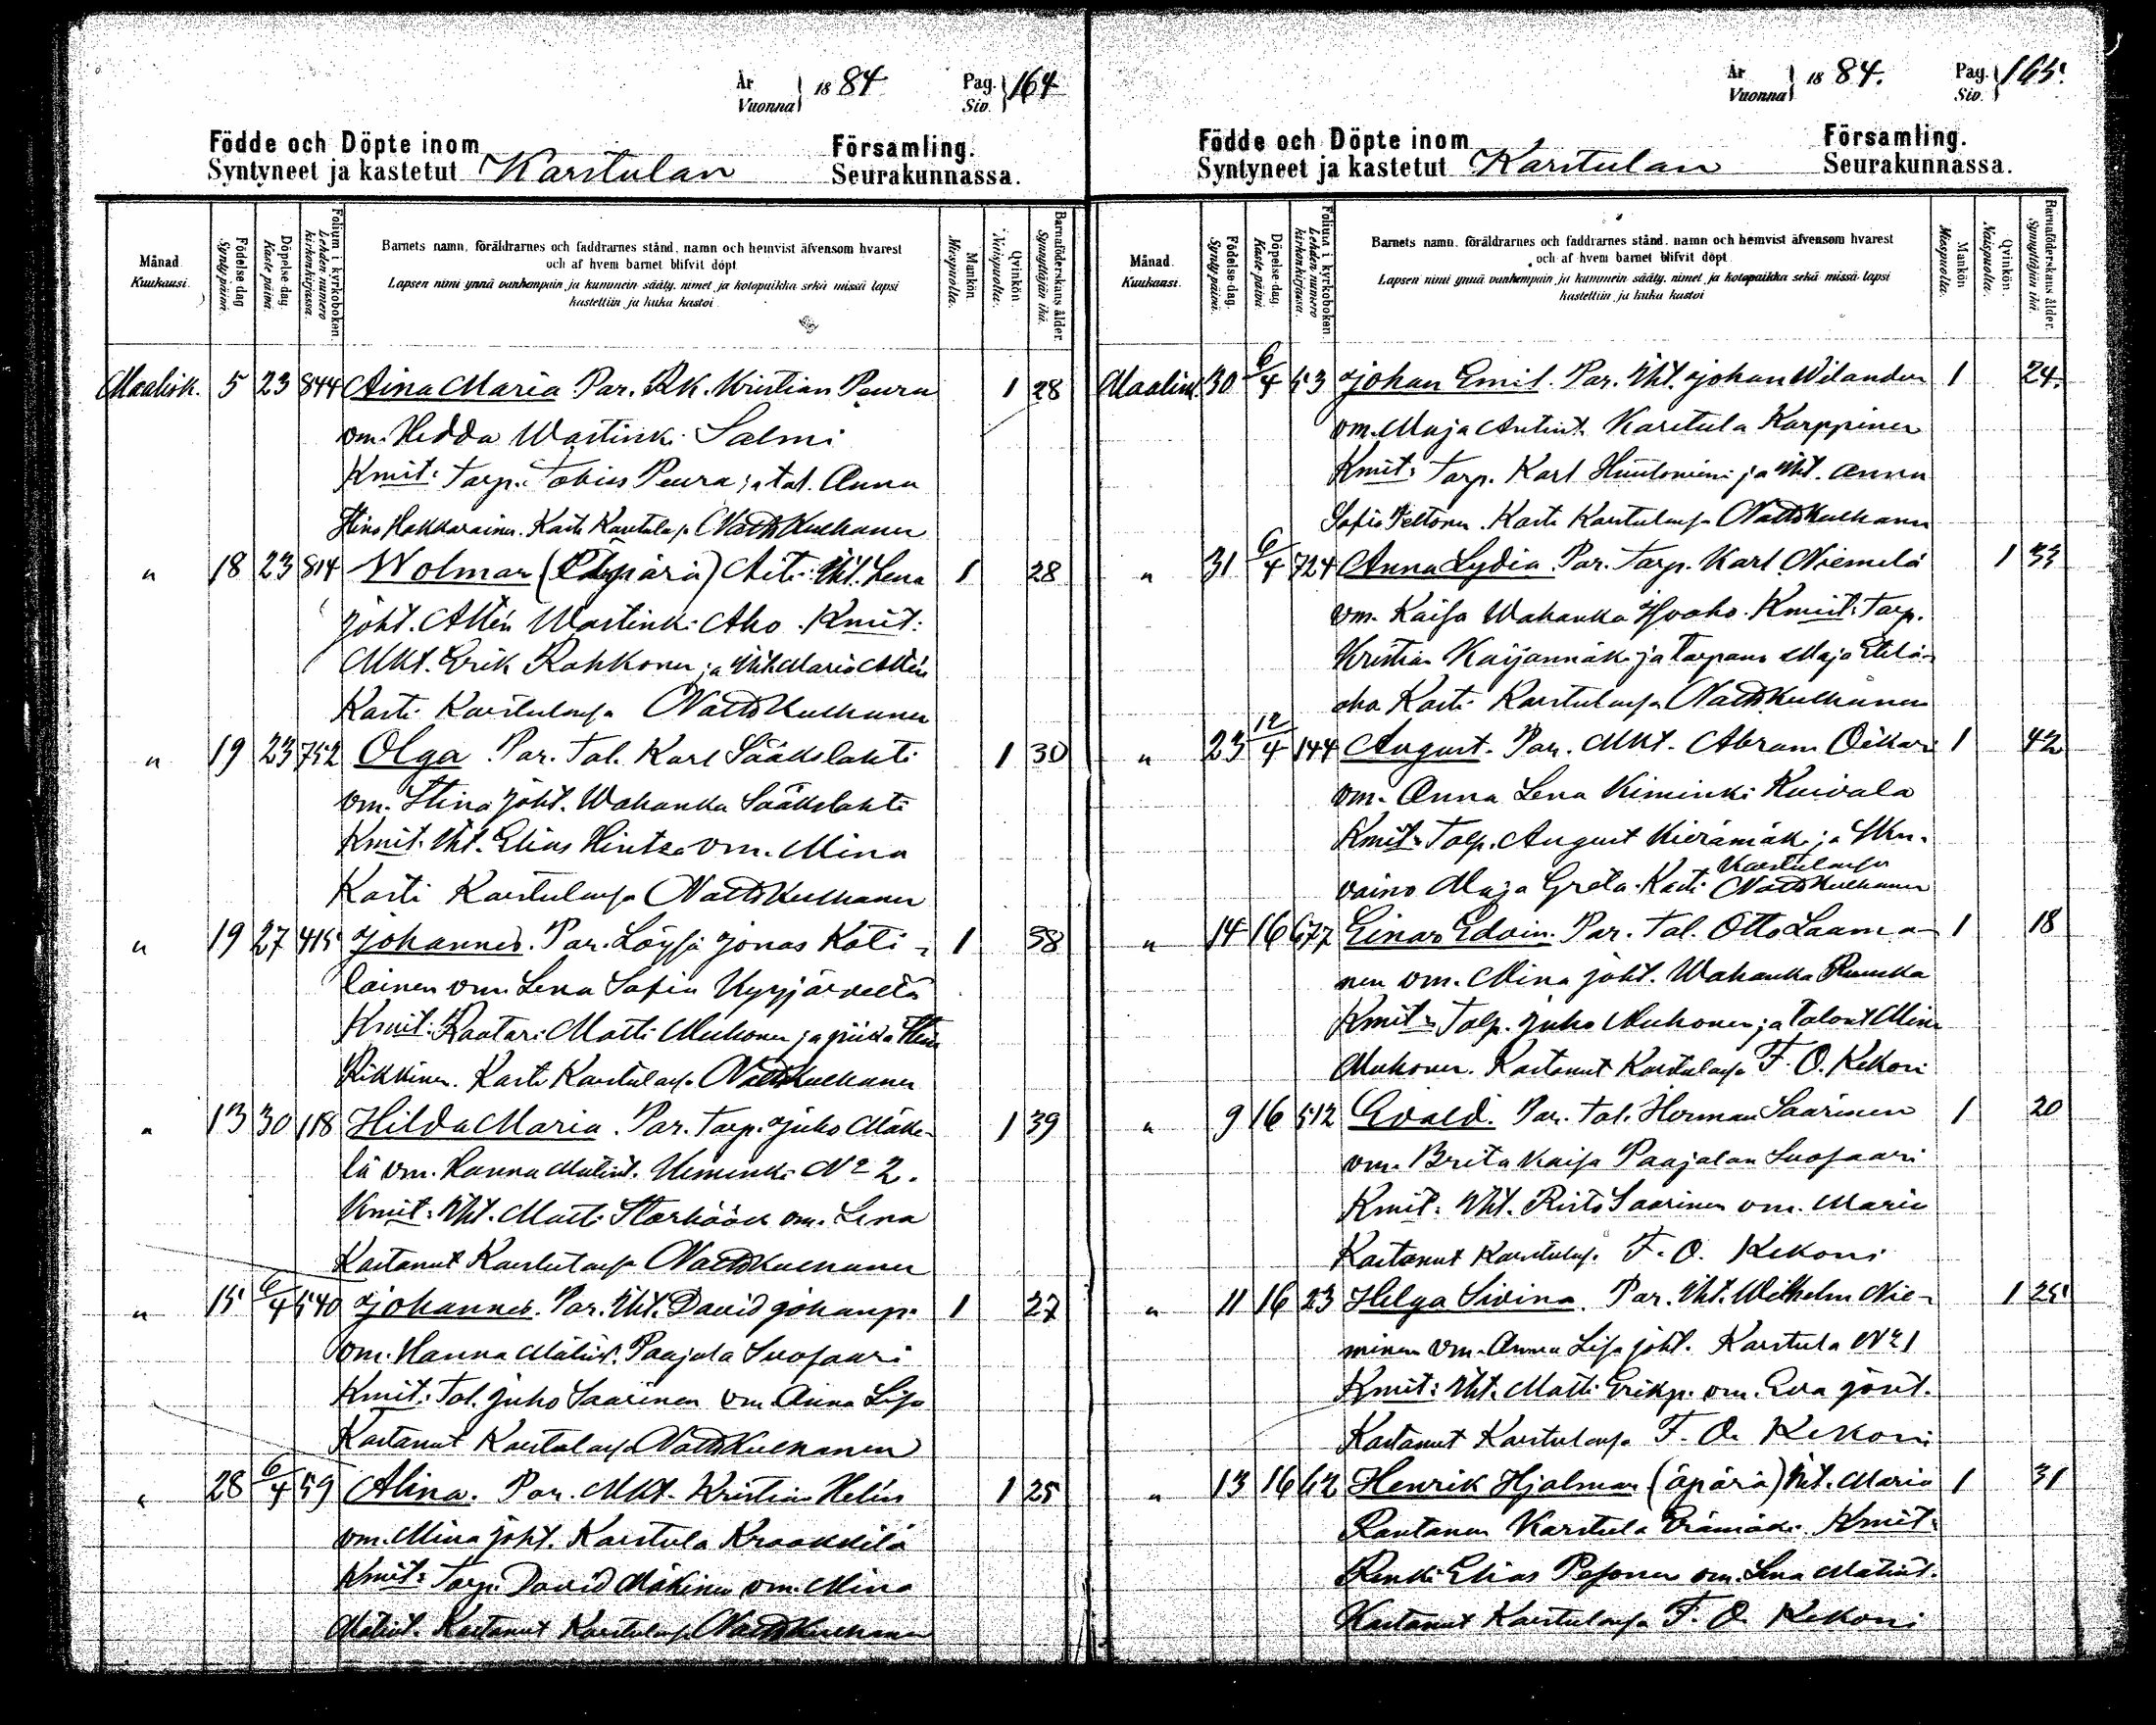 År
Vuonna
18 84
Pag.
Siv.
164
Födde och Döpte inom
Syntyneet ja kastetut Karstulan
Församling.
Seurakunnassa.
Månad
Kuukausi.
Födelse-dag.
Synty päivä.
Döpelse-dag.
Kaste päivä.
Folium i kyrkoboken.
Lehden numero
kirkonkirjassa
Barnets namn, föräldrarnes och faddrarnes stånd, namn och hemvist äfvensom hvarest
och af hvem barnet blifvit döpt.
Lapsen nimi ynnä vanhempain ja kummein sääty, nimet ja kotopaikka sekä missä lapsi
kastettiin ja kuka kastoi.
Mankön.
Miespuolta.
Qvinkön.
Naispuolta.
Barnaföderskans ålder.
Synnyttäjän ikä.
Maalisk. 5 23 844 Aina Maria Par. RK. Kristian Peura 1 28
vm. Hedda Wastinki Salmi
Kmit: Torp. Tobias Peura ja tal. Anna
Stina Hakkarainen. Kasti Karstulassa Matts Kulhanen
" 18 23 814 Wolmar (Äpärä) Äiti: Iht. Lena 1 28
Joht. AlLén Wastinki Aho. Kmit:
Mkt. Erik Rahkonen ja Iht. Maria
Kasti Karstulassa Matts Kulhanen
" 19 23 752 Olga Par. Tal. Karl Sääkslahti 1 30
vm. Stina Joht. Wahanka Sääkslahti
Kmit. Iht. Elias Hintsa vm. Mina
Kasti Karstulassa Matts Kulhanen
" 19 27 415 Johannes. Par. Löysä Jonas Koti- 1 38
lainen vm. Lena Sofia Kyyjärveltä
Kmit: Raatari Matti Muhonen ja piika Stina
Rikkinen. Kasti Karstulassa Matts Kulhanen
" 13 30 118 Hilda Maria. Par. Torp. Juho Mäke- 1 39
lä vm. Hanna Matint. Kiminki No 2.
Kmit: Iht. Matti Storhöök vm. Lena
Kastanut Karstulassa Matts Kulhanen
" 15 6/4 540 Johannes. Par. Iht. David Johanp. 1 27
vm. Hanna Matint. Paajala Suosaari
Kmit: Tal. Juho Saarinen vm. Anna Lisa
Kastanut Karstulassa Matts Kulhanen
" 28 6/4 59 Alina. Par. Mkt. Kristian Helin 1 25
vm. Mina Joht. Karstula Kraakkila
Kmit: Torp. David Mäkinen vm. Mina
Matint. Kastanut Karstulassa Matts Kulhanen
År
Vuonna
18 84.
Pag.
Siv.
165.
Födde och Döpte inom
Syntyneet ja kastetut Karstulan
Församling.
Seurakunnassa.
Månad.
Kuukausi.
Födelse-dag.
Synty päivä.
Döpelse-dag.
Kaste päivä.
Folium i kyrkoboken.
Lehden numero
kirkonkirjassa.
Barnets namn, föräldrarnes och faddrarnes stånd, namn och hemvist äfvensom hvarest
och af hvem barnet blifvit döpt.
Lapsen nimi ynnä vanhempain ja kummein sääty, nimet ja kotopaikka sekä missä lapsi
kastettiin ja kuka kastoi
Mankön
Miespuolta.
Qvinkön.
Naispuolta.
Barnaföderskans ålder.
Synnyttäjän ikä.
Maalisk. 30 6/4 53 Johan Emil. Par. Iht. Johan Wilander 1 24.
vm. Maja Antint. Karstula Karppinen
Kmit: Torp. Karl ja Iht. Anna
Sofia Peltonen. Kasti Karstulassa Matts Kulhanen
" 31 6/4 724 Anna Lydia. Par. Torp. Karl Niemelä 1 33
vm. Kaisa Wahanka Isoaho. Kmit: Torp.
Kristian Kaijanmäki ja Torpans Maja Etelä-
aho Kasti Karstulassa Matts Kulhanen
" 23 12/4 144 August. Par. Mkt. Abram Oikari 1 42
vm. Anna Lena Kiminki Koivula
Kmit: Talp. August Kierämäki ja Ikn.
vaimo Maja Greta. Kasti Karstulassa Matts Kulhanen
" 14 16 677 Einar Edvin. Par. Tal. Otto Laama- 1 18
nen vm. Mina Joht. Wahanka Ruuska
Kmit: Talp. Juho Muhonen ja Talont. Mina
Muhonen. Kastanut Karstulassa F. O. Kekoni
" 9 16 512 Evald. Par. Tal. Herman Saarinen 1 20
vm. Brita Kaisa Paajalan Suosaari
Kmit: Iht. Risto Saarinen vm. Maria
Kastanut Karstulassa F. O. Kekoni
" 11 16 23 Helga Sivina. Par. Iht. Wilhelm Nie- 1 25
minen vm. Anna Lisa Joht. Karstula No 1
Kmit: Iht. Matti Erikp. vm. Eva Joht.
Kastanut Karstulassa F. O. Kekoni
" 13 16 62 Henrik Hjalmar (äpärä) Iht. Maria 1 31
Rautanen Karstula Erämäki. Kmit:
Renki Elias Pesonen vm. Lena Matint.
Kastanut Karstulassa F. O. Kekoni